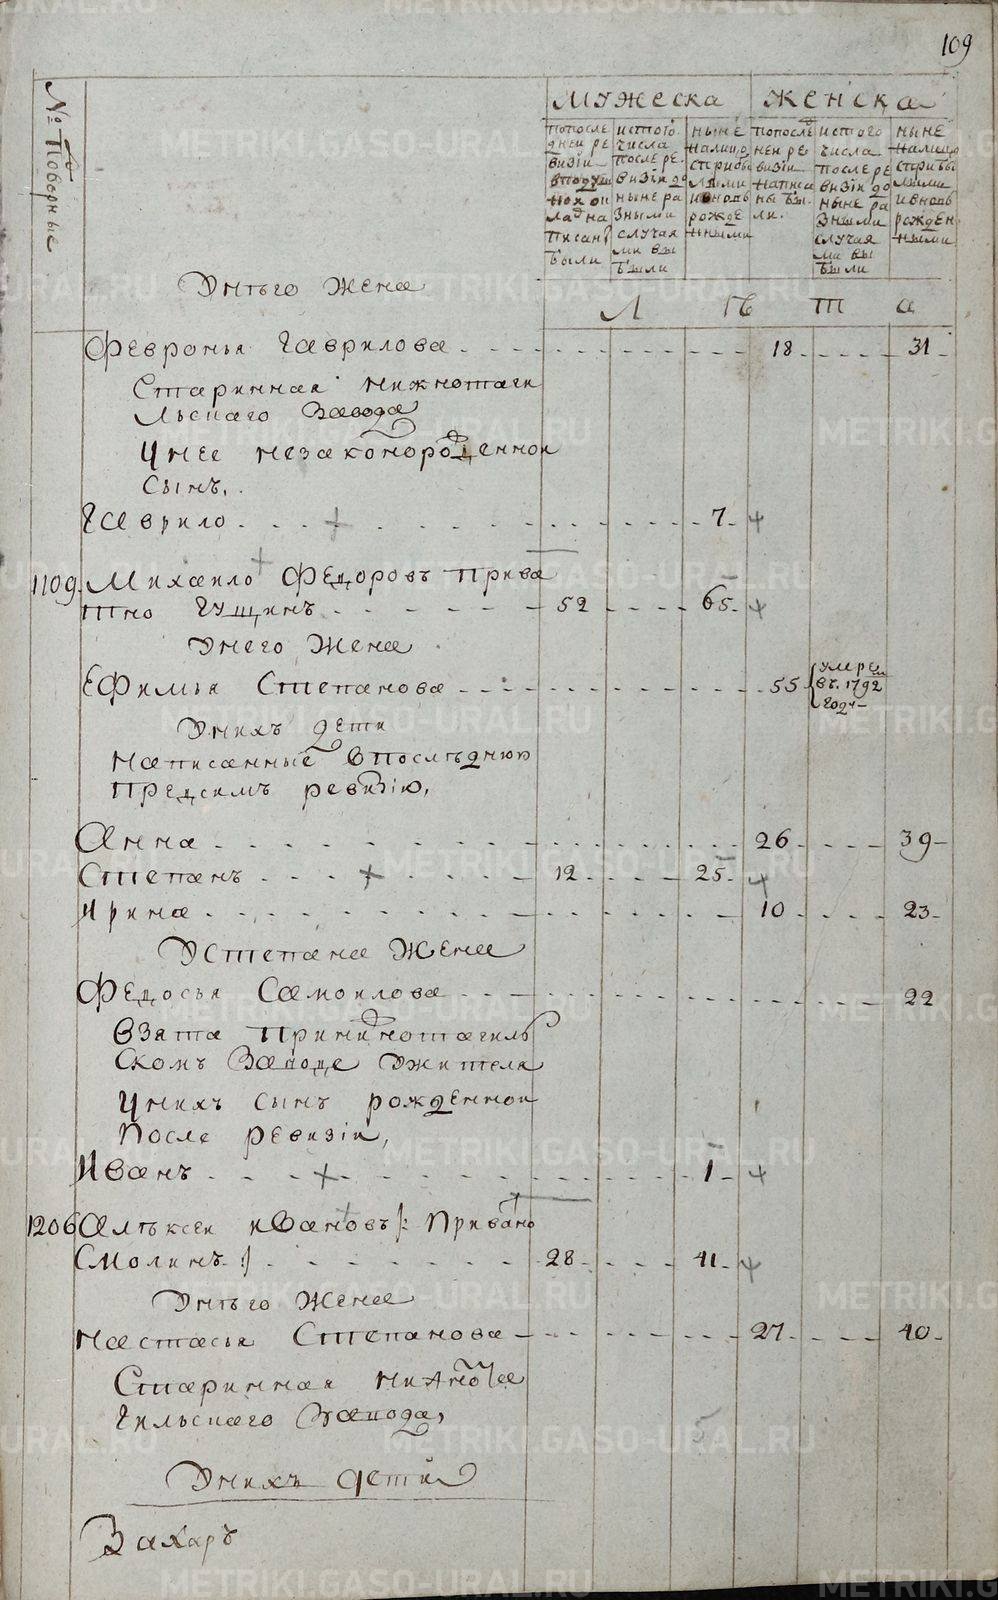 109
№ Поверные
мужеска
женска
попосле
дней ре
визіи
вподуш
ной ок
ладъ на
писаны
были
истого
числа
после ре
визіи до
ныне ра
зными
случая
ми вы
были
ныне
налицо
сприбы
лыми
ивновь
рожде
нными
попослед
ней ре
визіи
написа
ны бы
ли.
истого
числа
после ре
визіи до
ныне ра
зными
случая
ми вы
были
ныне
налицо
сприбы
лыми
ивновь
рожден
ными
Л ѣ т а
Унего жена
Февронья Гаврилова 18 31
Старинная нижнотаги
льскаго завода
Унее незаконорожденной
сынъ.
Гаврило 7
1109. Михаило Федоровъ прива
тно Гущинъ 52 65
Унего жена
Ефимья Степанова 55
умре
въ 1792
году
Унихъ дети
написанные впоследнюю
предсимъ ревизію,
Анна 26 39
Степанъ 12 25
Ирина 10 23
Устепана жена
Федосья Самоилова 22
взята принижнотагиль
скомъ заводе ужителя
Унихъ сынъ рожденной
после ревизіи,
Иванъ 1
1206 Алѣксеи ивановъ/: Приватно
Смолинъ :/ 28 41
Унего жена
настасья Степанова 27 40
Старинная нижнота
гильскаго завода,
5
Унихъ дети
Захаръ